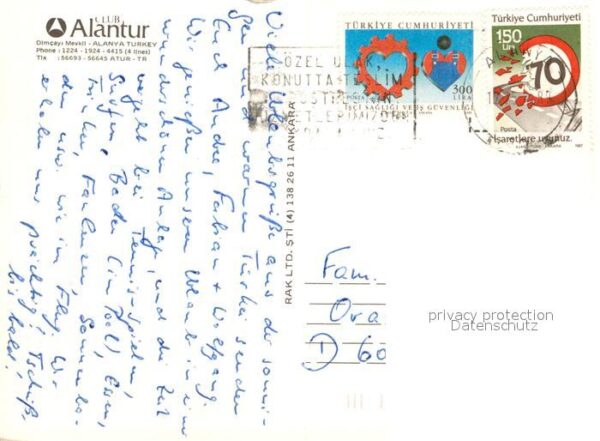 CLUB
Alantur
Dimçayı Mevkii - ALANYA TURKEY
Phone : 1224 - 1924 - 4415 (4 lines)
Tlx : 56693 - 56645 ATUR - TR
Viele Urlaubsgrüße aus der sonni-
gen und warmen Türkei senden
Euch Andre, Fabian + Wolfgang.
Wir genießen unseren Urlaub in einer
wunderschönen Anlage, und die Zeit
vergeht bei Tennis-spielen,
Baden (im Pool), Essen,
Trinken, Faulenzen, Sonnenba-
den usw. wie im Flug. Wir
erholen uns prächtig! Tschüß,
bis bald!
RAK LTD. ŞTİ (4) 138 26 11 ANKARA
TÜRKİYE CUMHURİYETİ
POSTA
300
LİRA
İŞÇİ SAĞLIĞI VE İŞ GÜVENLİĞİ
Türkiye Cumhuriyeti
150
Lira
70
Posta
İşaretlere uyunuz.
1987
ÖZEL ULAK,
KONUTTA TESLİM
Fam.
Ora
D 60
privacy protection
Datenschutz